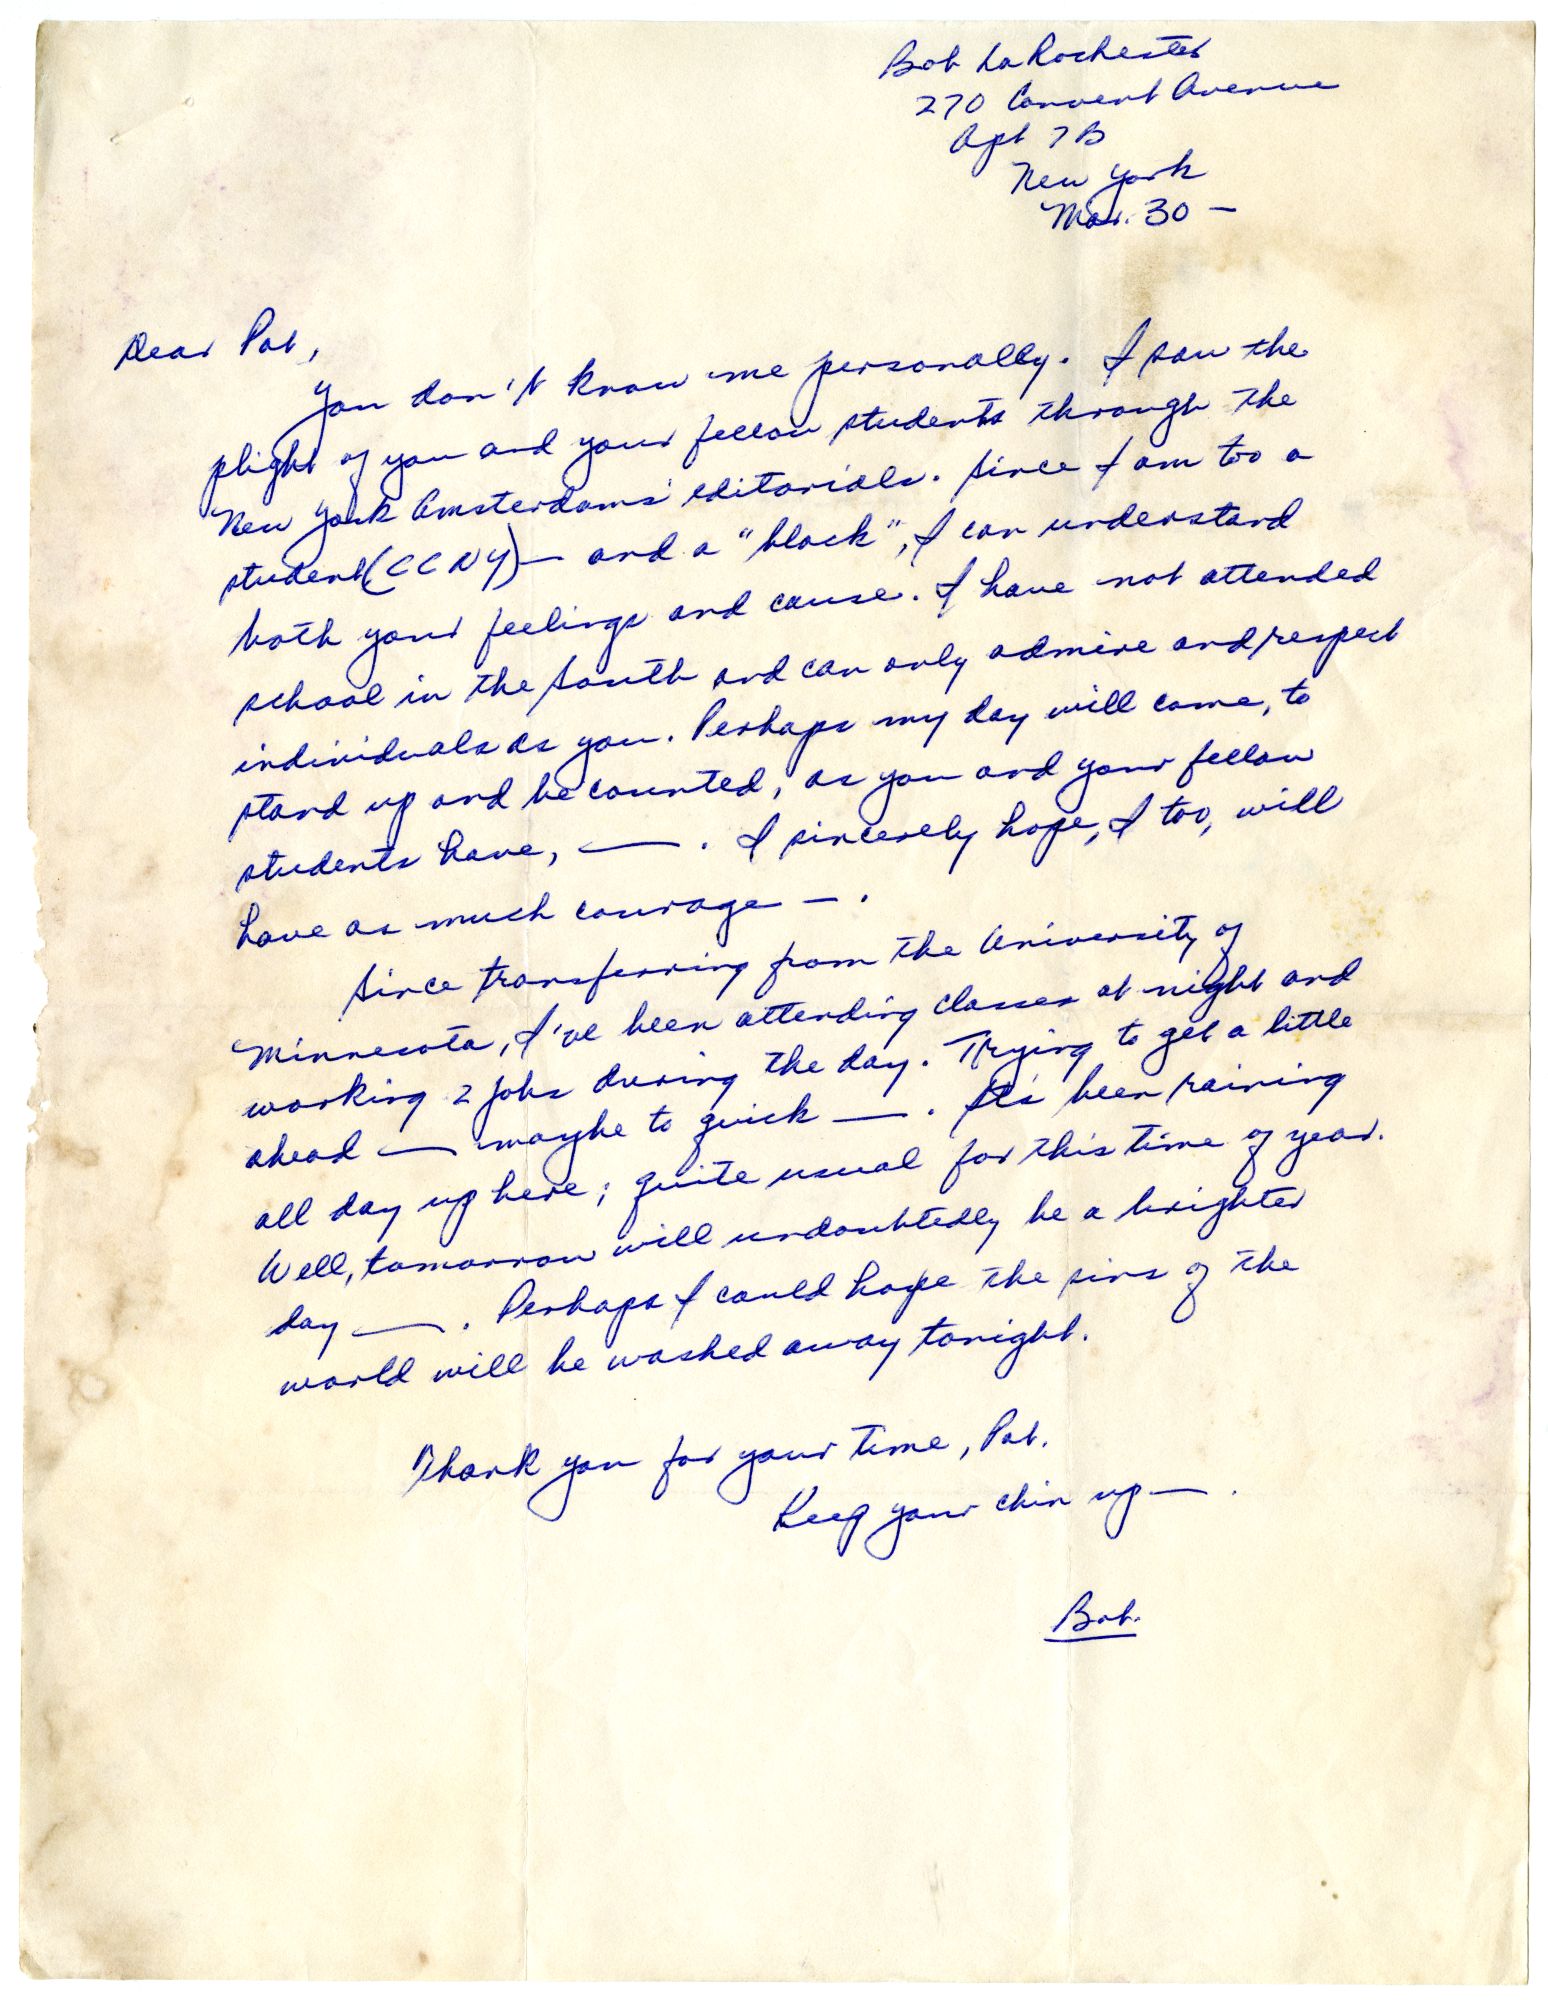 Bob LaRochester
270 Convent Avenue
Apt 7B
New York
Mar. 30 —
Dear Pat,
You don't know me personally. I saw the
plight of you and your fellow students through the
New York Amsterdams' editorials. Since I am too a
student (CCNY) — and a "black", I can understand
both your feelings and cause. I have not attended
school in the South and can only admire and respect
individuals as you. Perhaps my day will come, to
stand up and be counted, as you and your fellow
students have, — . I sincerely hope, I too, will
have as much courage — .
Since transferring from the University of
Minnesota, I've been attending classes at night and
working 2 jobs during the day. Trying to get a little
ahead — maybe to quick — . It's been raining
all day up here; quite usual for this time of year.
Well, tomorrow will undoubtedly be a brighter
day — . Perhaps I could hope the sins of the
world will be washed away tonight.
Thank you for your time, Pat.
Keep your chin up — .
Bob.